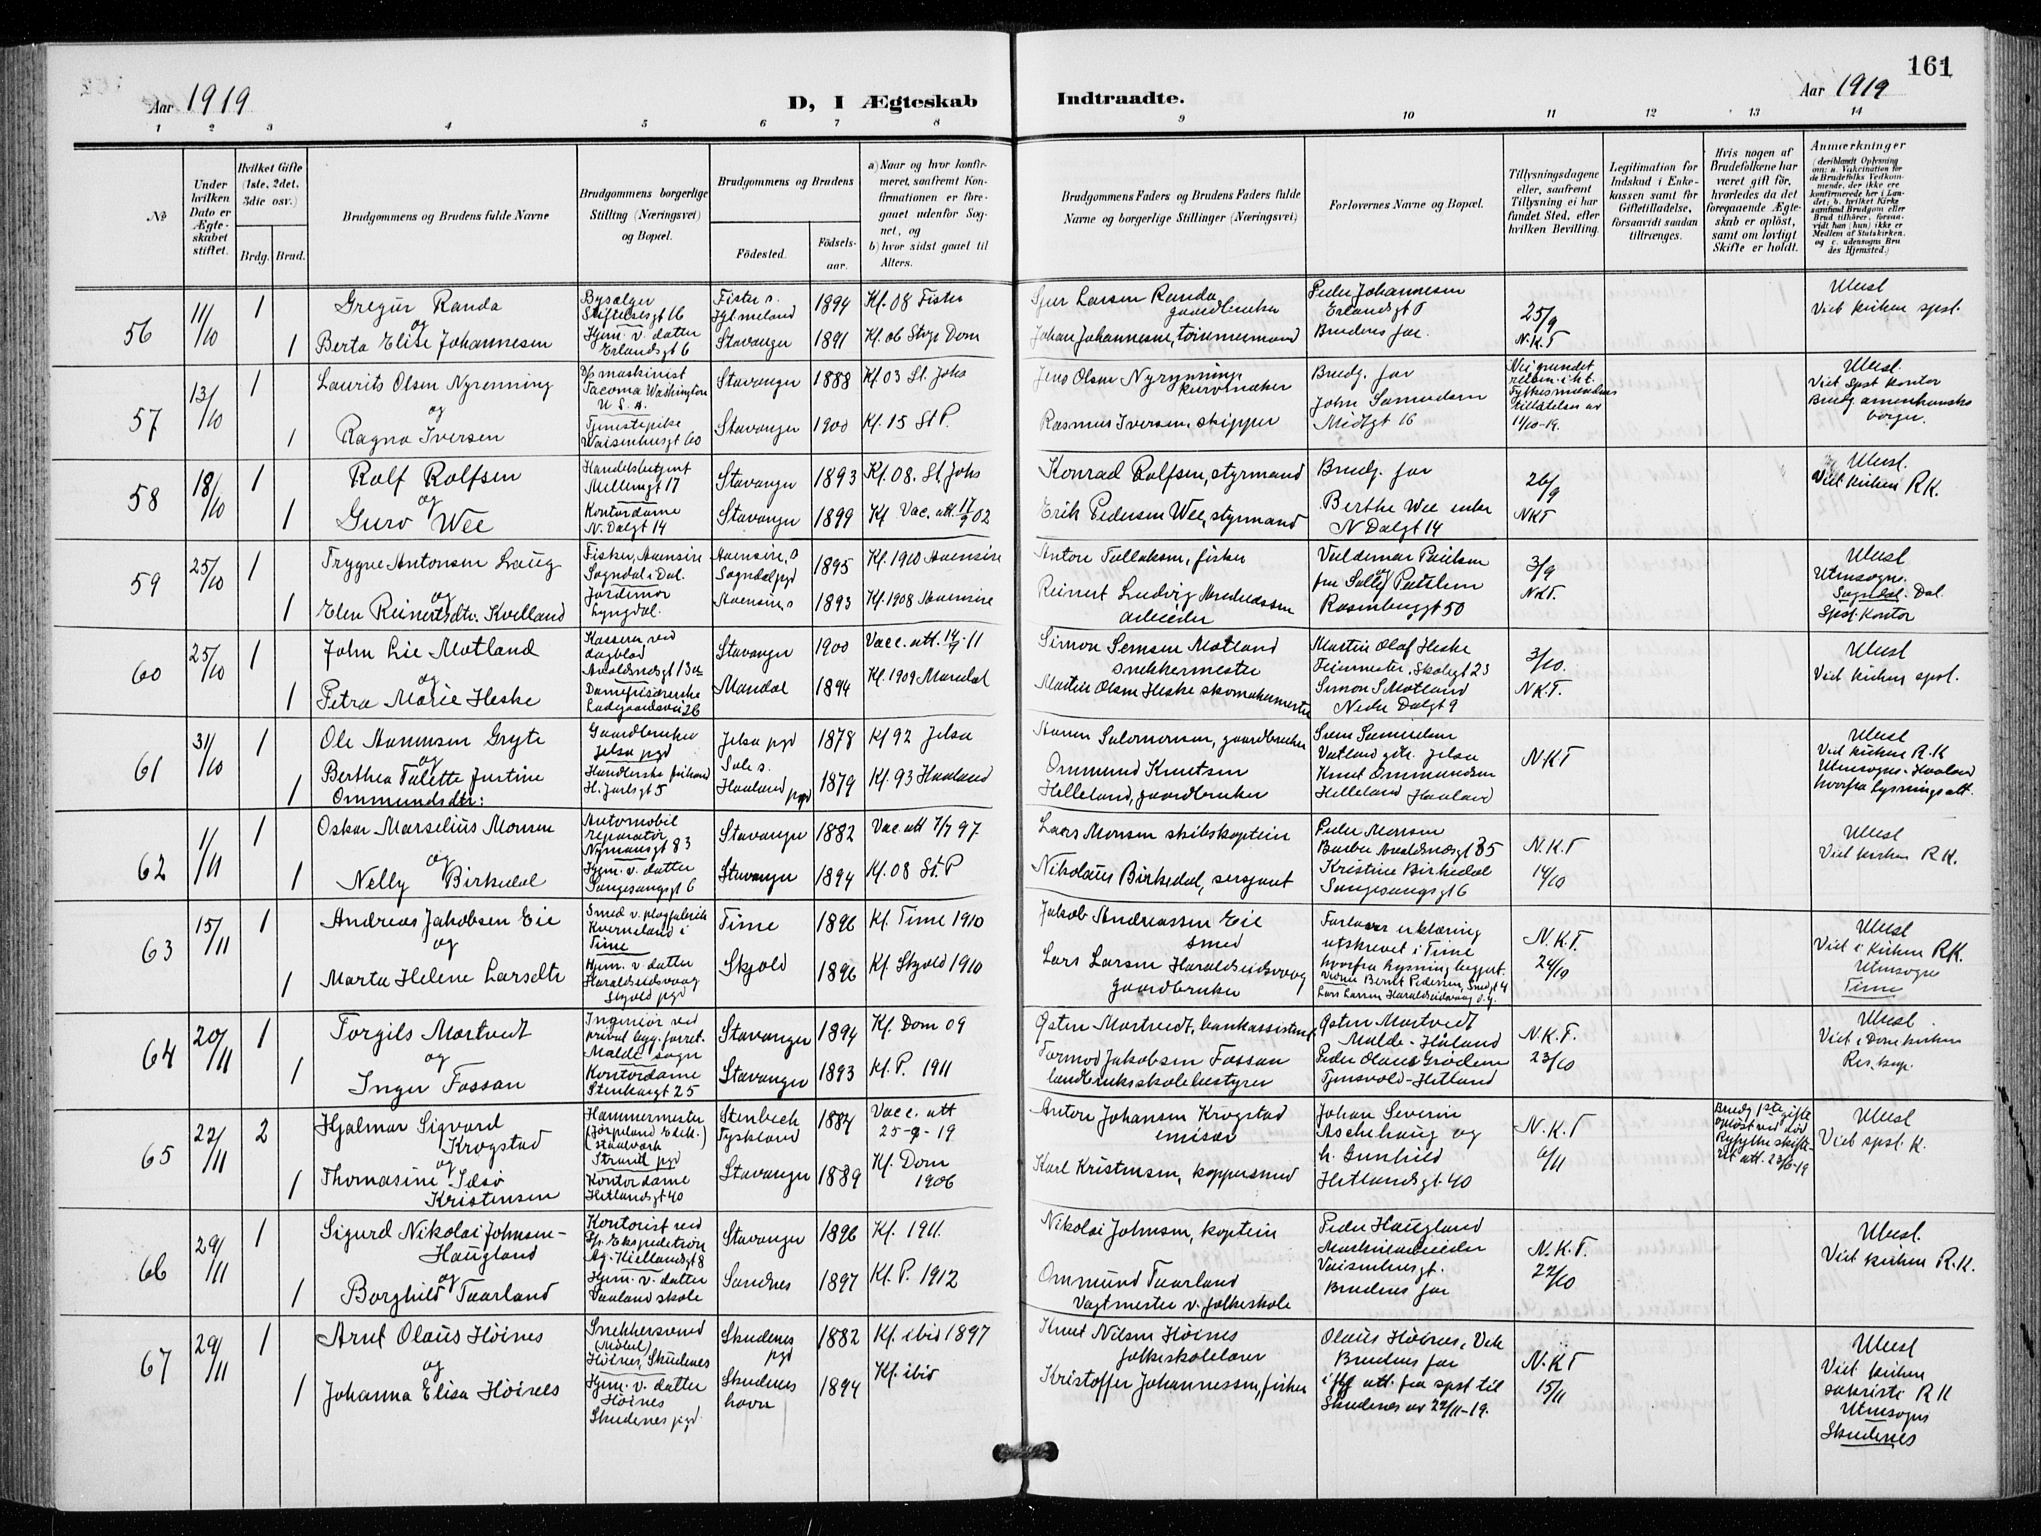 161
Aar 1919
D, I Ægteskab Indtraadte.
Aar 1919
1 2 3 4 5 6 7 8 9 10 11 12 13 14
No
Under hvilken Dato er Ægteskabet stiftet.
Hvilket Gifte (1ste, 2det, 3die osv.)
Brdg. Brud.
Brudgommens og Brudens fulde Navne
Brudgommens borgerlige Stilling (Næringsvei) og Bopæl.
Brudgommens og Brudens
Fødested.
Fødselsaar.
a) Naar og hvor konfirmeret, saafremt Konfirmationen er foregaaet udenfor Sognet, og
b) hvor sidst gaaet til Alters.
Brudgommens Faders og Brudens Faders fulde Navne og borgerlige Stillinger (Næringsvei)
Forlovernes Navne og Bopæl.
Tillysningsdagene eller, saafremt Tillysning ei har fundet Sted, efter hvilken Bevilling.
Legitimation for Indskud i Enkekassen samt for Giftetilladelse, forsaavidt saadan tiltrænges.
Hvis nogen af Brudefolkene har været gift før, hvorledes da det foregaaende Ægteskab er opløst, samt om lovligt Skifte er holdt.
Anmærkninger
(deriblandt Oplysning om: a. Vaccination for de Brudefolks Vedkommende, der ikke er konfirmerede her i Landet; b. hvilket Kirkesamfund Brudgom eller Brud tilhører, forsaavidt han (hun) ikke er Medlem af Statskirken, og c. udensogns Brudes Hjemsted.)
56 11/10 1
Gregur Randa
og
1 Berta Elise Johannesen
Bysælger
Stiftelsesgt 16
Hjem. v. datter
Erlandsgt 6
Fister s.
Hjelmeland
Stavanger
1894
1891
Kf. 08 Fister
Kf. 06 Stvg Dom
Sjur Larsen Randa
gaardbruker
Johan Johannesen, tømmermand
Peder Johannesen
Erlandsgt 6
Brudens far.
25/9
N.K.T
Ulæst
Viet kirken spst.
57 13/10 1
Laurits Olsen Nyrenning
og
1 Ragna Iversen
D/s maskinist
Tacoma Washington
U S. A.
Tjenestepike
Waisenhusgt 60
Stavanger
Stavanger
1888
1900
Kf. 03 St. Johs
Kf. 15 St P.
Jens Olsen Nyrynning
kurvmaker
Rasmus Iversen, skipper
Brudg. far
John Samuelsen
Midtgt 16
Fylkesmandens
tillatelse av
11/10-19.
Ulæst.
Viet spst kontor
Brudg. amerikansk
borger.
58 18/10 1
Rolf Rolfsen
og
1 Guro Wee
Handelsbetjent
Møllengt 17
Kontordame
N. Dalgt 14
Stavanger
Stavanger
1893
1899
Kf. 08. St. Johs
Kf Vac. att. 17/9 02
Konrad Rolfsen, styrmand
Erik Pedersen Wee, styrmand
Brudg. far
Berthe Wee enke
N Dalgt 14
26/9
NKT
Ulæst.
Viet kirken R K.
59 25/10 1
Trygve Antonsen Laug
og
1 Elen Reinertsdtr. Kvelland
Fisker, Aaensire
Sogndal i Dal.
Jordmor
Lyngdal.
Aaensire, s
Sogndal pgd
Aaensire, s
1895
1893
Kf. 1910 Aaensire
Kf. 1908 Aaensire
Anton Tallaksen, fisker
Reinert Ludvig Andreassen
arbeider
Valdemar Paulsen
og
Rosenberggt 50
3/9
NKT.
Ulæst
Utensogns
Sogndal. Dal.
Spst. kontor
60 25/10 1
John Lie Motland
og
1 Petra Marie Heske
Kasserer ved
dagblad
Avaldsnesgt 13a
Damefrisørerske
Ladegaardsvei 26
Stavanger
Mandal
1900
1894
Vacc. att. 14/9-11
Kf. 1909 Mandal
Simon Semsen Motland
snekkermester
Martin Olsen Heske skomakermester
Martin Olaf Heske
Feiermester, Skolegt 23
Simon S Motland
Nedre Dalgt 9
3/10.
N.K.T.
Ulæst
Viet kirken spst.
61 31/10 1
Ole Aanensen Gryte
og
1 Berthea Talette Justine
Ommundsdtr:
Gaardbruker
Jelsa pgd
H. Jarlsgt 5
Jelsa pgd
Sole s.
Haaland pgd
1878
1879
Kf 92 Jelsa
Kf. 93 Haaland
Aanen Salomonsen, gaardbruker
Ommund Knutsen
Helleland, gaardbruker
Sven Samuelsen
Vatland gdr. Jelsa
Knut Ommundsen
Helleland Haaland
N.K.T
Ulæst
Viet kirken R.K
Utensogns. Haaland
hvorfra lysningsatt.
62 1/11 1
Oskar Marselius Monsen
og
1 Nelly Birkedal
Automobil
reparatør
Nymansgt 83
Hjem. v. datter
Sangesangsgt 6
Stavanger
Stavanger
1882
1894
Vac. att 7/7 97
Kf. 08 St. P
Lars Monsen skibskaptein
Nikolaus Birkedal, sersjant
Peder Monsen
Barber Avaldsnesgt 35
Kristine Birkedal
Sangesangsgt 6
N.K.T
14/10
Ulæst
Viet kirken R K.
63 15/11 1
Andreas Jakobsen Eie
og
1 Marta Helene Larsdtr
Smed v. plogfabrik
Kverneland i
Time
Hjem. v datter
Haraldseidsvaag
Skjold pgd
Time
Skjold
1896
1896
Kf. Time 1910
Kf. Skjold 1910
Jakob Andreassen Eie
smed
Lars Larsen Haraldseidsvaag
gaardbruker
Forlover erklæring
utskrevet i Time
hvorfra lysning begjært.
Vidner Bernt Pedersen, Smedgt 4
Lars Larsen Haraldseidsvaag o. g.
N.K.T.
24/10
Ulæst
Viet i kirken RK.
Utensogns
Time
64 20/11 1
Torgils Mortvedt
og
1 Inger Fossan
Ingeniør ved
privat bygg. forret.
Malde sogn
Kontordame
Stenhagt 25
Stavanger
Stavanger
1894
1893
Kf. Dom 09
Kf. P. 1911
Østen Mortvedt, bankassistent
Tormod Jakobsen Fossan
landbruksskolebestyrer
Østen Mortvedt
Malde-Håland
Peder Olaus Grødem
Tjensvold-Hetland
N.K.T.
23/10
Ulæst
Viet i Domkirken
Res. kap.
65 22/11 2
Hjalmar Sigvard
Krogstad
og
1 Thomasine Idsø
Kristensen
Hammermester
(Jørpeland Elek.)
staalverk
Strand pgd
Kontordame
Hetlandsgt 40
Stenbech
Tyskland
Stavanger
1884
1889
Vacc. att
25-9-19
Kf. Dom
1906
Anton Johansen Krogstad
emisær
Karl Kristensen, koppersmed
Johan Severin
Aschehaug og
h. Gunhild
Hetlandsgt 40
N.K.T
6/11
Brudg 1ste gifte
opløst ved død
Ryfylke skifteret
att. 23/6-19
Ulæst
Viet spst. K.
66 29/11 1
Sigurd Nikolai Johnsen-
Haugland
og
1 Borghild Taarland
Kontorist ved
Sp. Ekspedition
Ag. Kiellandsgt 8
Hjem. v. datter
Vaaland skole
Stavanger
Sandnes
1896
1897
Kf. 1911.
Kf. P. 1912
Nikolai Johnsen, kaptein
Ommund Taarland
Vagtmester v. folkeskole
Peder Haugland
Maskinarbeider
Vaisenhusgt.
Brudens far
N.K.T.
22/10
Ulæst.
Viet kirken R.K.
67 29/11 1
Arnt Olaus Høines
og
1 Johanna Elisa Høines
Snekkersvend
(Møbel)
Høines, Skudenes
Hjem. v. datter
Høines
Skudenes pgd.
Skudenes
pgd
Skudenes
havn
1882
1894
Kf. ibid 1897
Kf. ibid
Knut Nilsen Høines
folkeskolelærer
Kristoffer Johannessen, fisker
Olaus Høines, Vik
Brudens far
iflg att. fra spst til
Skudenes av 22/11-19.
N.K.T
15/11
Ulæst
Viet kirken
sakristi R K
Utensogns
Skudenes